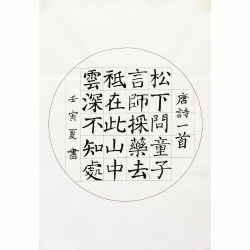 唐詩一首
松下問童子
言師採藥去
祗在此山中
雲深不知處
壬寅夏書